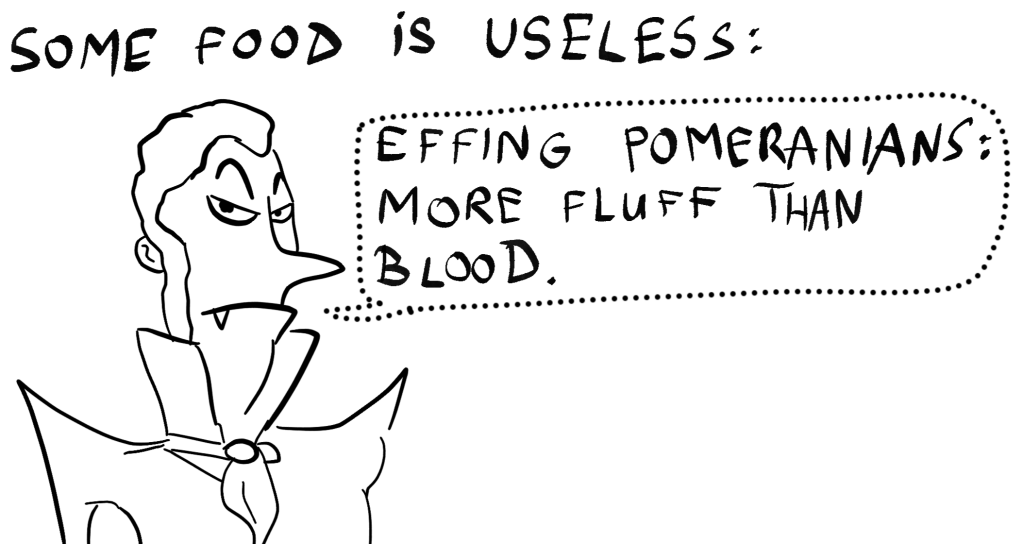 SOME FOOD iS USELESS:
EFFING POMERANIANS:
MORE FLUFF THAN
BLOOD.